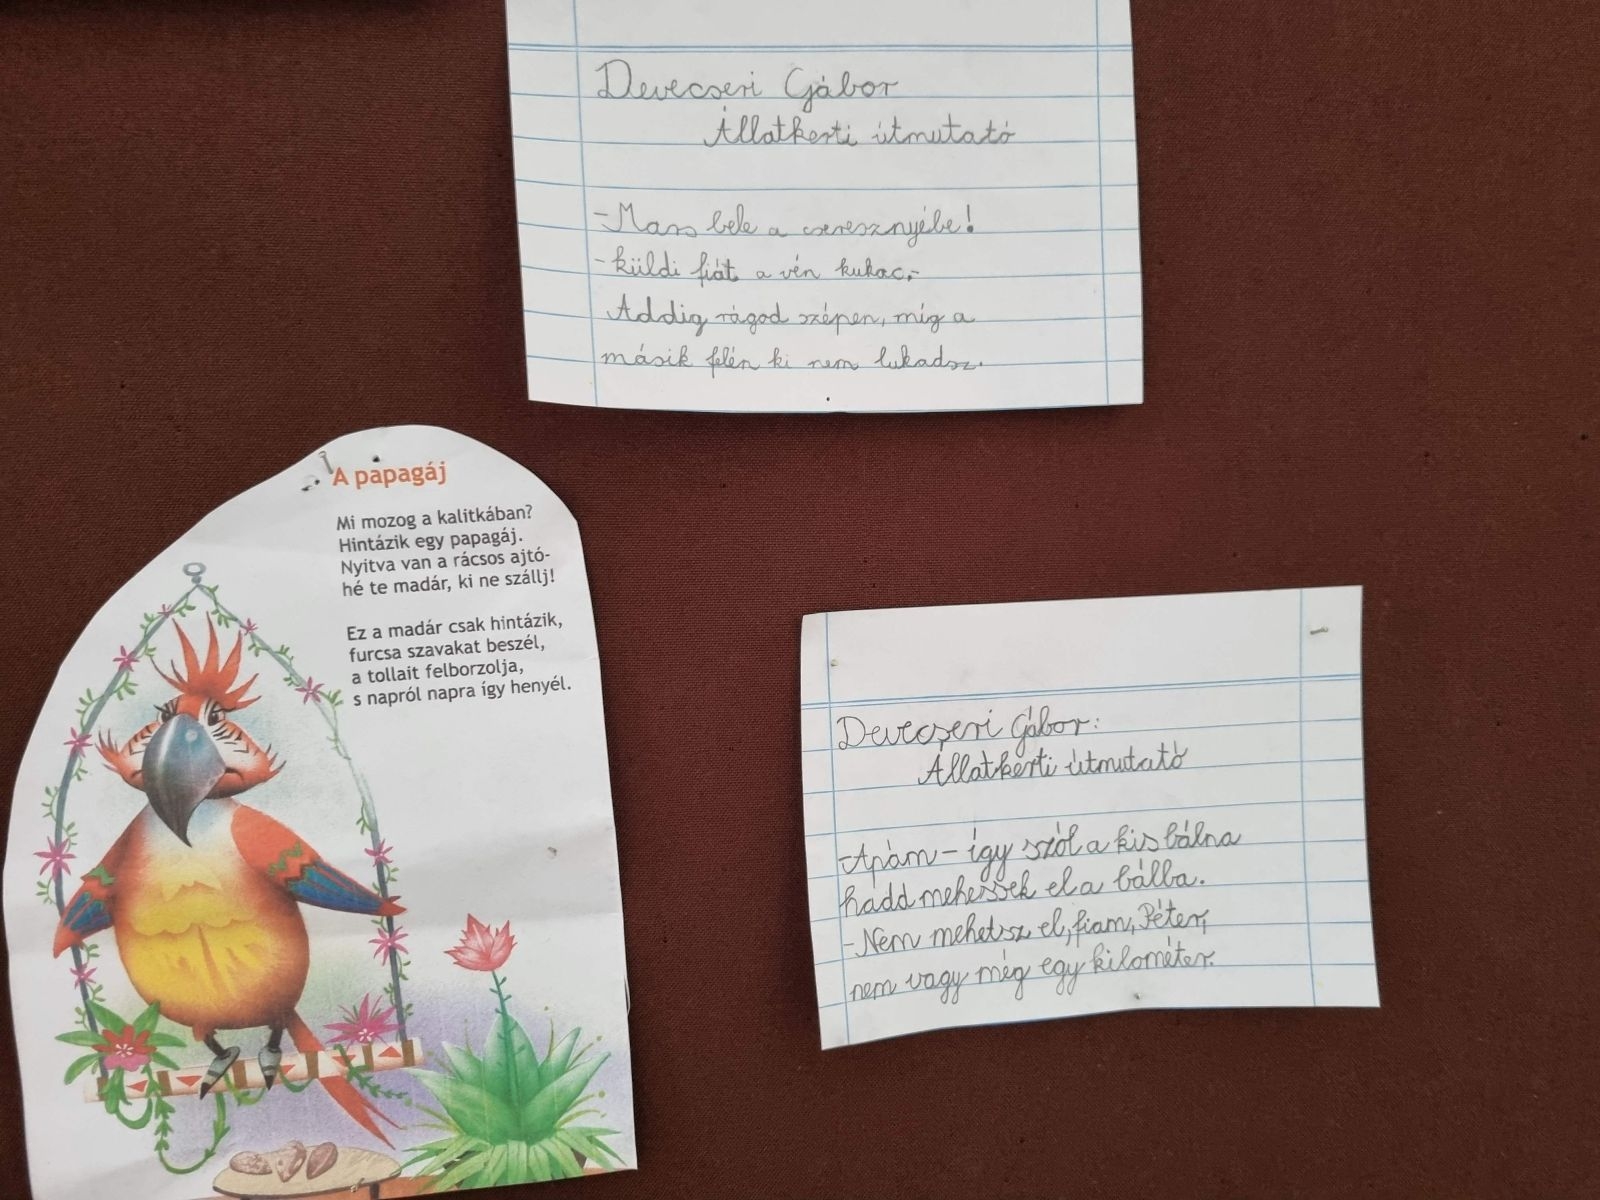 Devecseri Gábor
Állatkerti útmutató
-Mars bele a cseresznyébe!
-küldi fiát a vén kukac,-
Addig rágod szépen, míg a
másik felén ki nem lukadsz.
A papagáj
Mi mozog a kalitkában?
Hintázik egy papagáj.
Nyitva van a rácsos ajtó-
hé te madár, ki ne szállj!
Ez a madár csak hintázik,
furcsa szavakat beszél,
a tollait felborzolja,
s napról napra így henyél.
Devecseri Gábor:
Állatkerti útmutató
-Apám- így szól a kis bálna
hadd mehessek el a bálba.
-Nem mehetsz el, fiam, Péter,
nem vagy még egy kilométer.